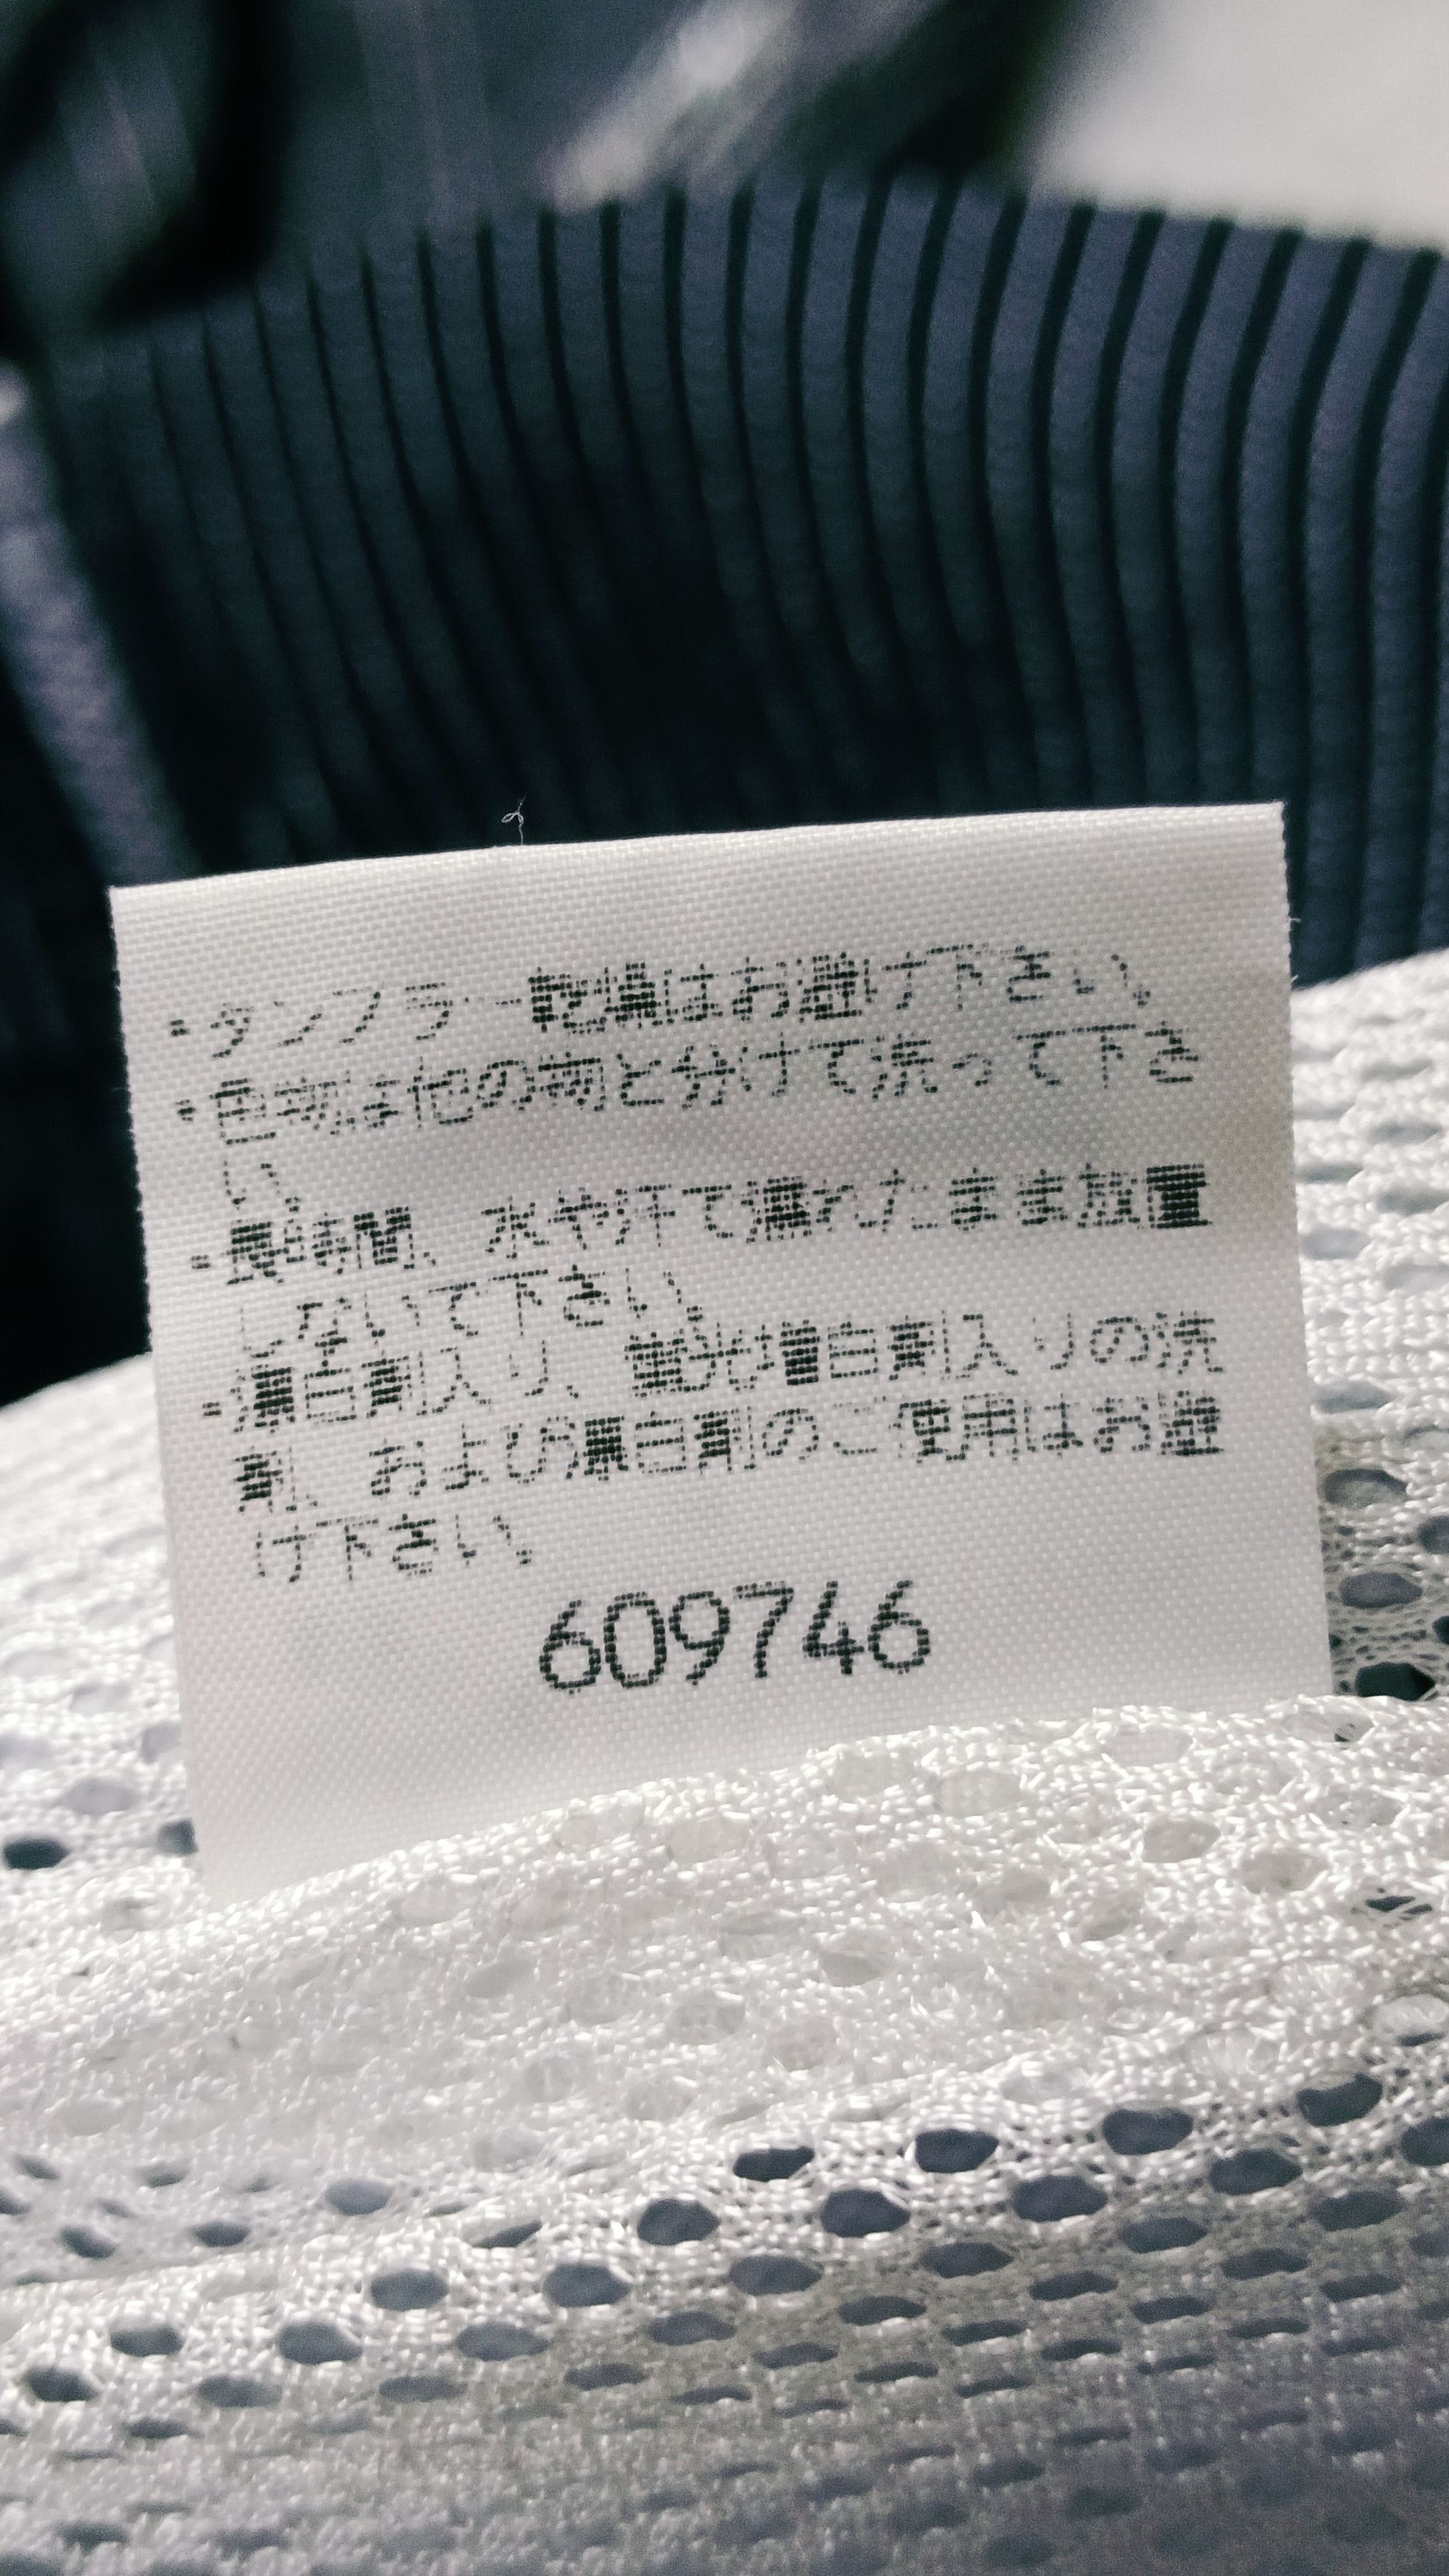 ・タンブラー乾燥はお避け下さい。
・色物は他の物と分けて洗って下さ
い。
・長時間、水や汗で濡れたまま放置
しないで下さい。
・漂白剤入り、蛍光増白剤入りの洗
剤、および漂白剤のご使用はお避
け下さい。
609746